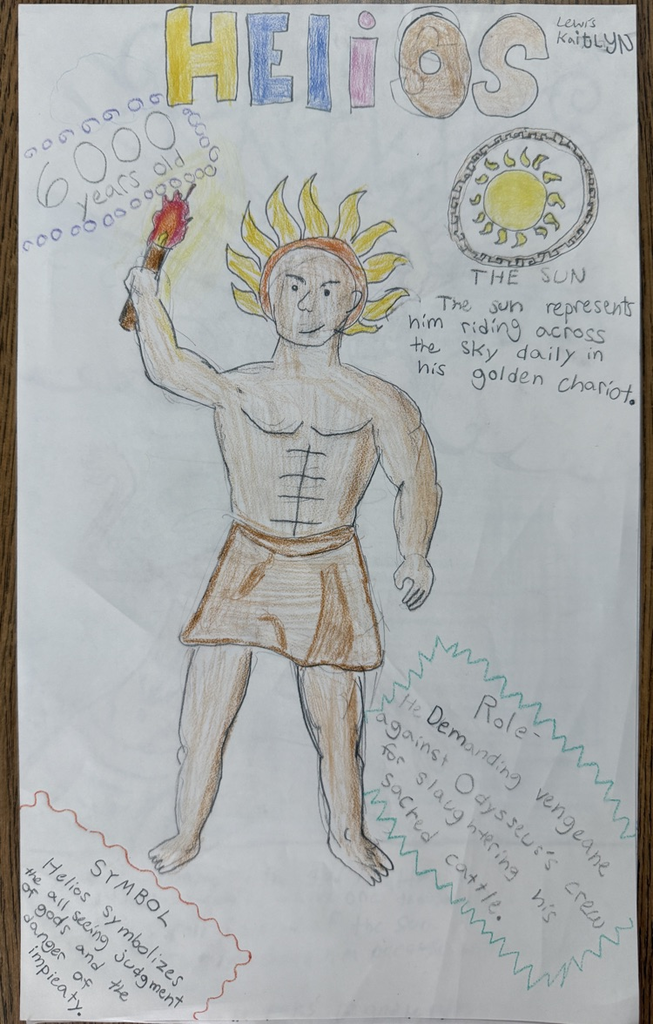 HELiOS
Lewis
KaitLYN
6000
years old
THE SUN
The sun represents
him riding across
the sky daily in
his golden chariot.
Role-
He Demanding vengeane
against Odysseus's crew
for slaughtering his
sacred cattle.
SYMBOL
Helios symbolizes
the all seeing judgment
of gods and the
danger of
impieaty.